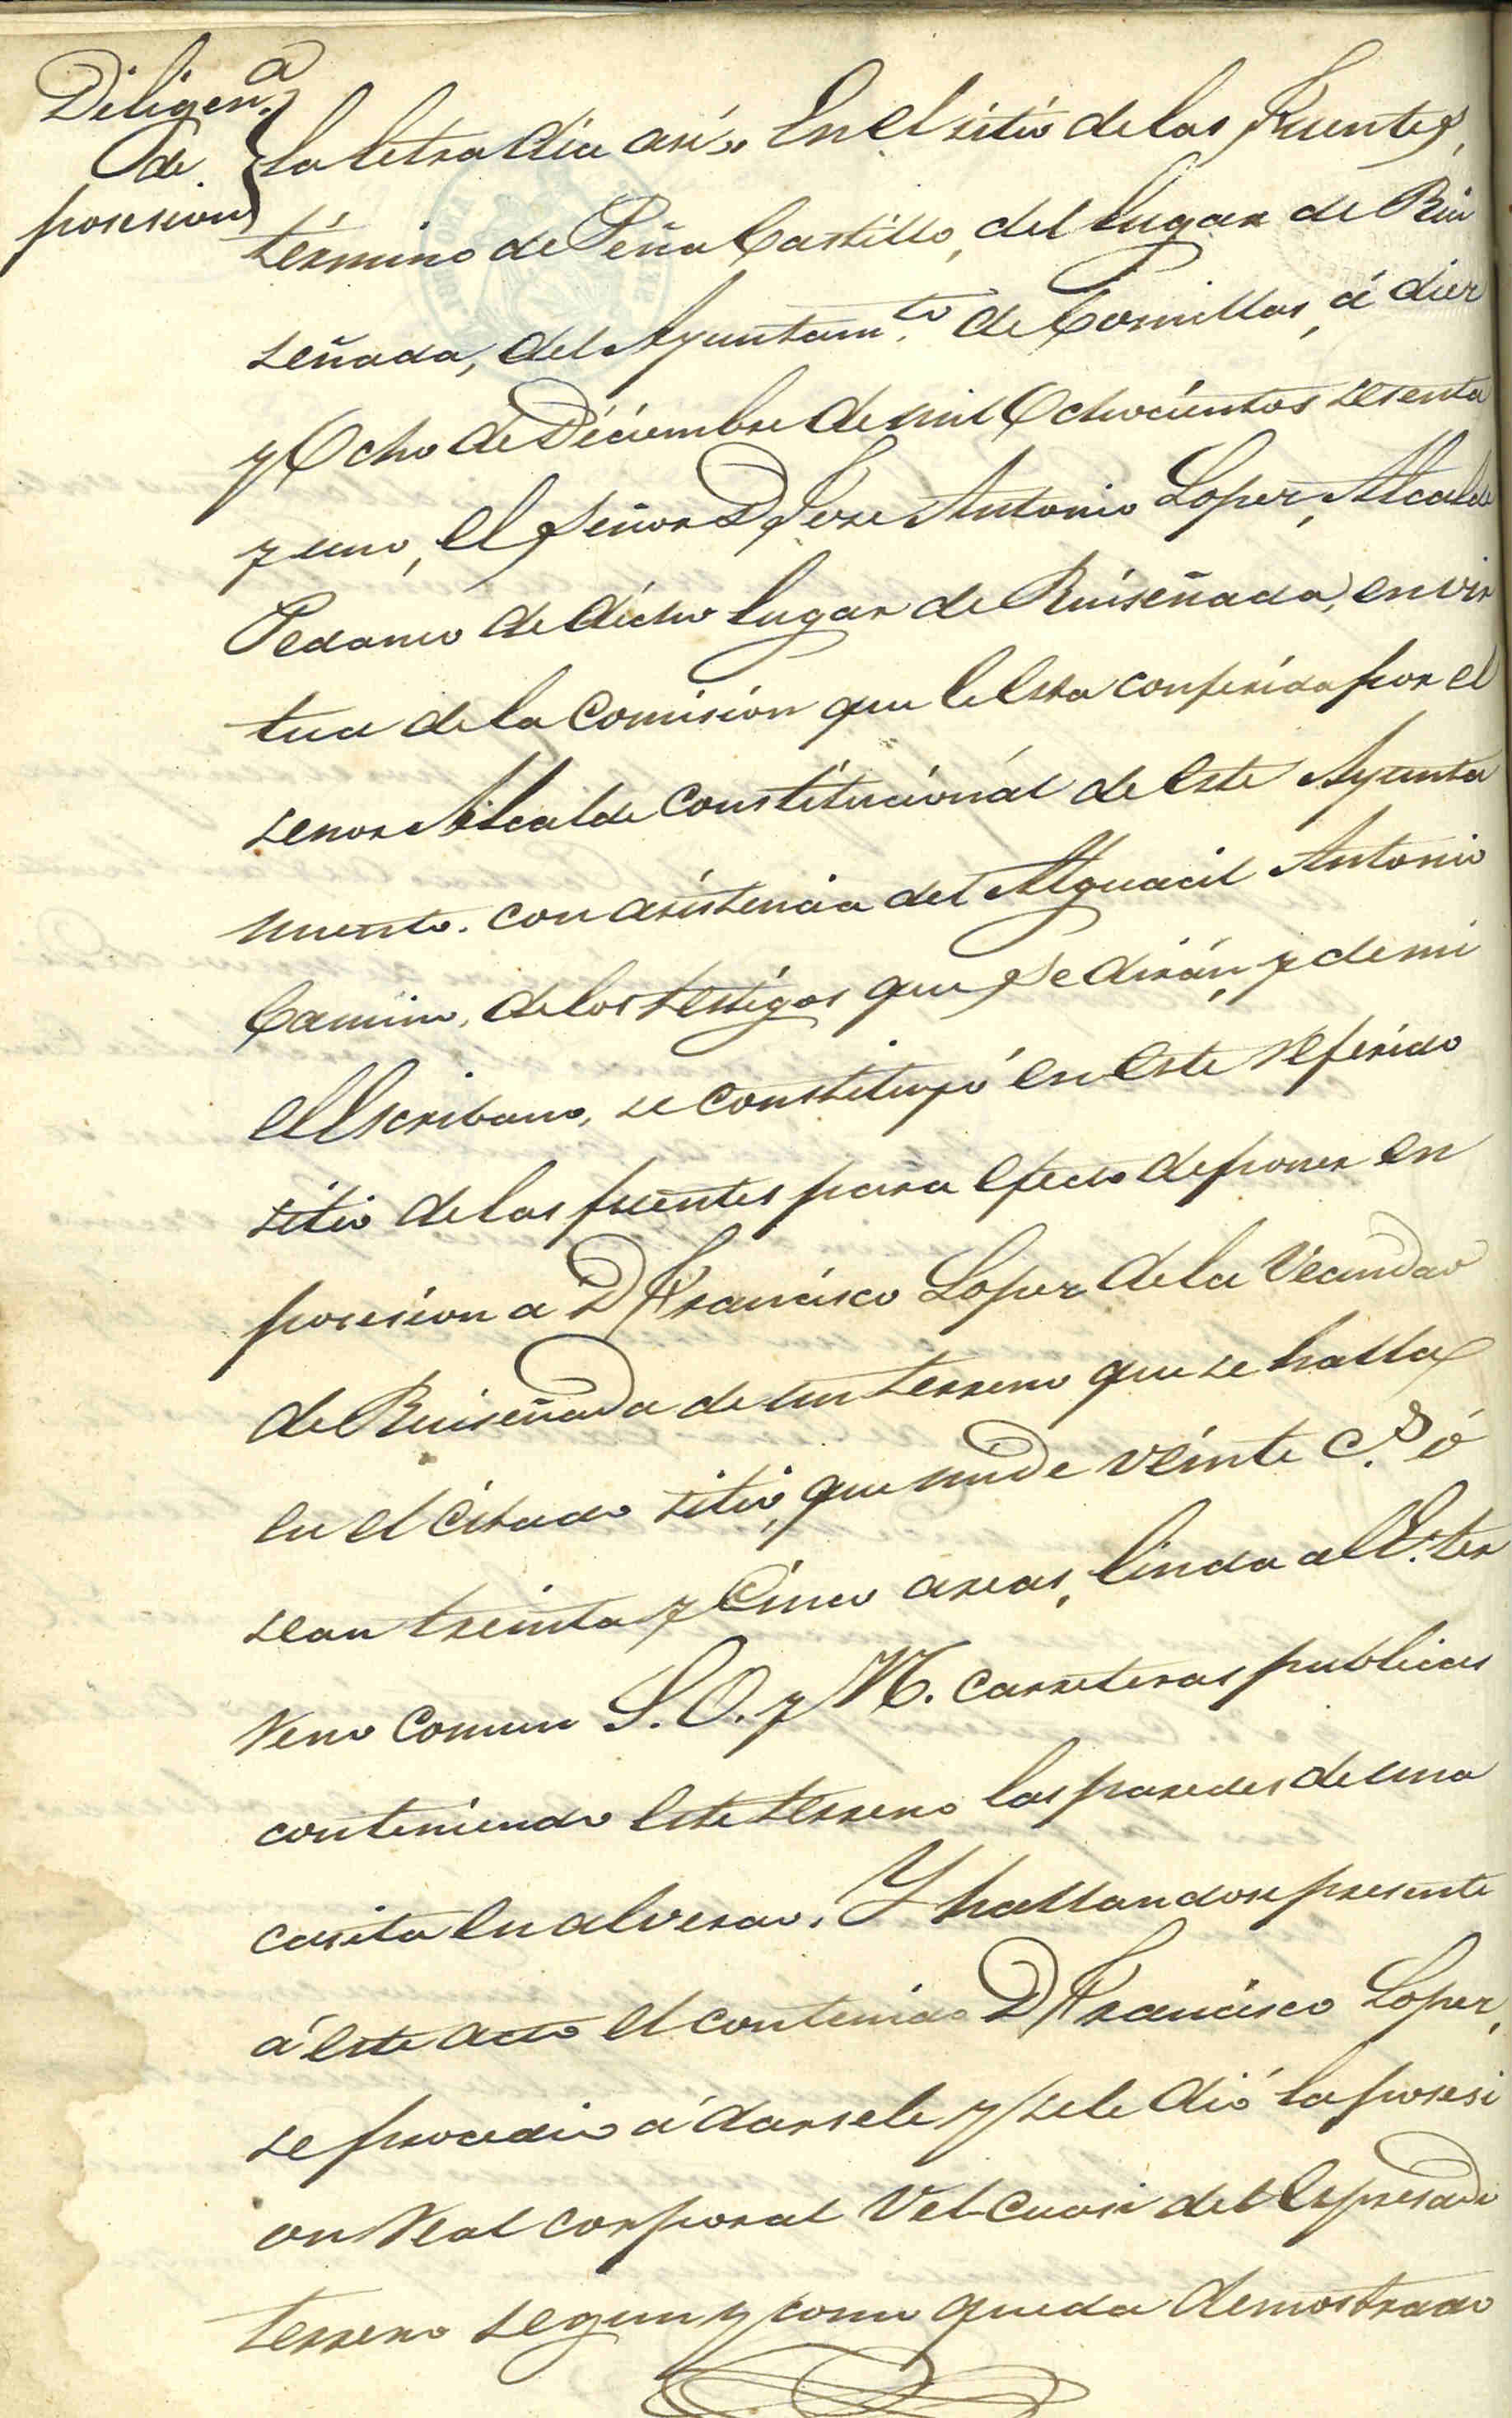 Diligen.a
de
posesion
la letra dice asi,, En el sitio de las Fuentes,
término de Peña Castillo, del lugar de Rui
señada, del Ayuntam.to de Comillas, á diez
y Ocho de Diciembre de mil Ochocientos sesenta
y uno, el Señor D Jose Antonio Lopez, Alcalde
Pedaneo de dicho lugar de Ruiseñada, en vir
tud de la Comision que le esta conferida por el
señor Alcalde Constitucional de este Ayunta
miento. con asistencia del Alguacil Antonio
Camino, de los testigos que se dirán, y de mi
el Escribano, se constituyó en este referido
sitio de las fuentes para efecto de poner en
posesion a D Francisco Lopez de la Vecindad
de Ruiseñada de un terreno que se halla
en el Citado sitio, que mide veinte C.s ó
sean treinta y Cinco areas, linda al E. ter
reno comun S. O. y N. carreteras publicas
conteniendo este terreno las paredes de una
casita en alverao. Y hallandose presente
á este acto el contenido D Francisco Lopez,
se procedio á darsele y se le dió la posesi
on Real corporal Vel-cuasi del Espresado
terreno segun y como queda demostrado